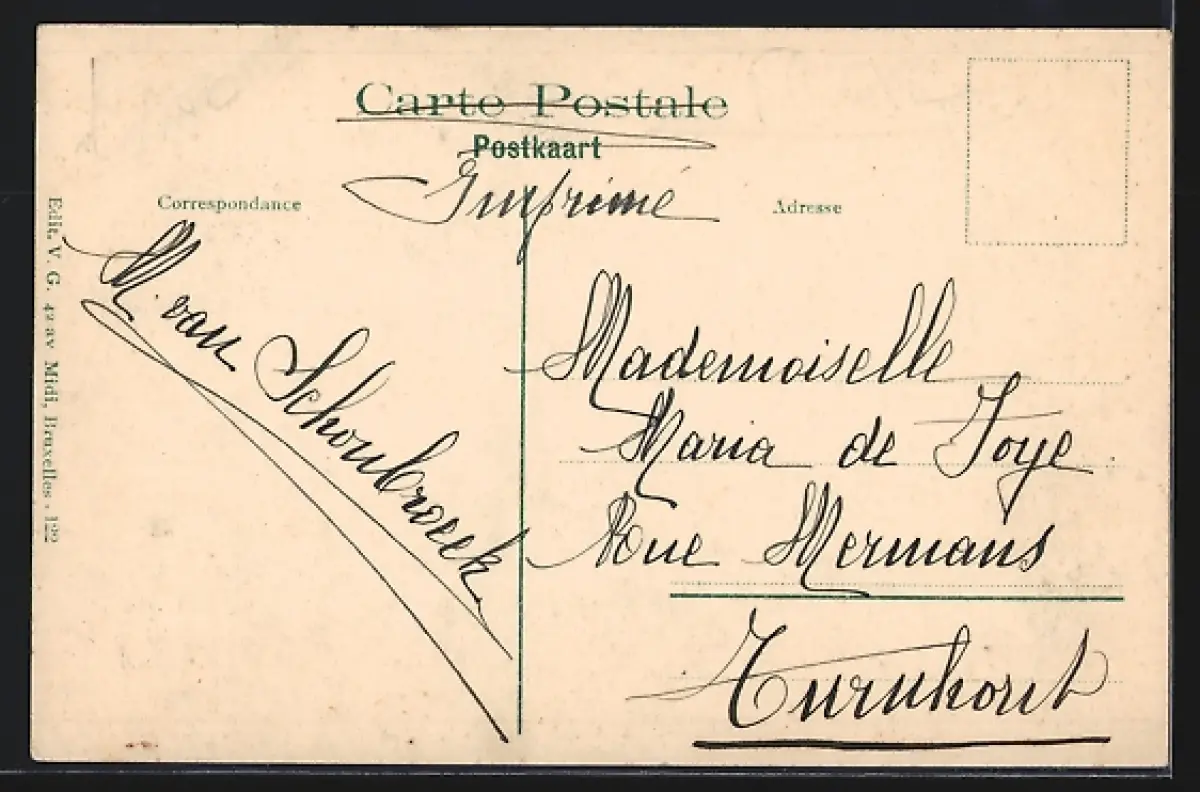 Carte Postale
Postkaart
Imprimé
Correspondance
Adresse
Edit. V. G. 42 av Midi, Bruxelles. 122
M. van Schoubroeck
Mademoiselle
Maria de Joye
Rue Mermans
Turnhout